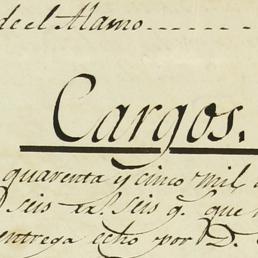 de el Alamo
Cargos.
quarenta y cinco mil
seis rr.s seis q.e que
entrega echo por D.